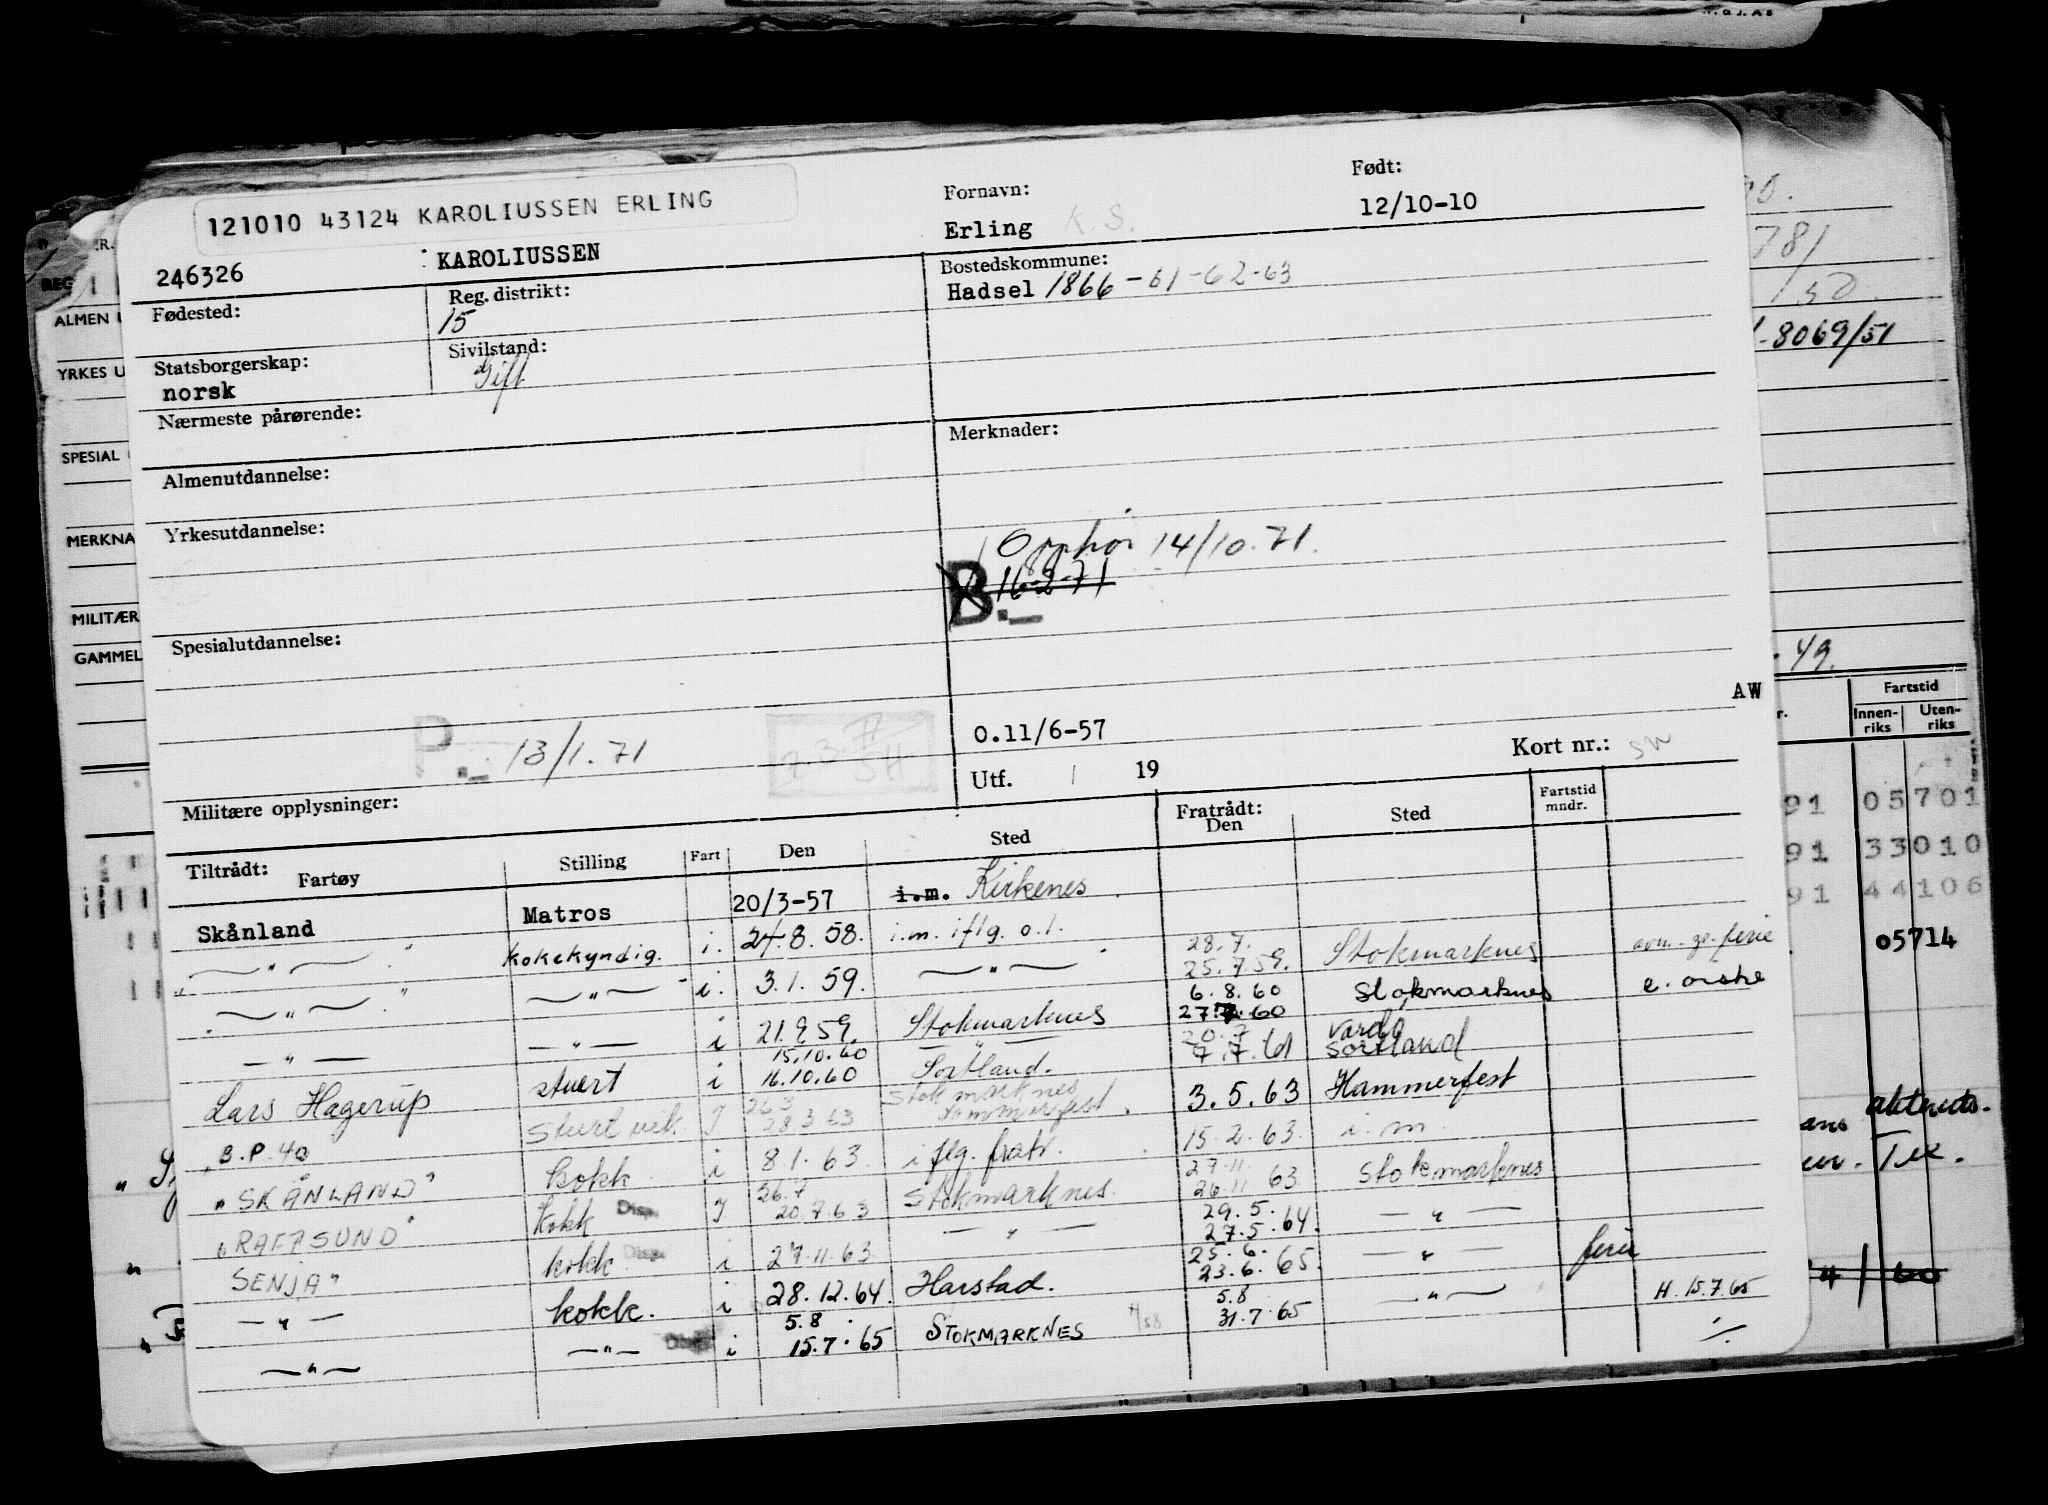 121010 43124 KAROLIUSSEN ERLING
246326
KAROLIUSSEN
Fornavn:
Erling K. S.
Født:
12/10-10
Fødested:
Reg. distrikt:
15
Bostedskommune:
Hadsel 1866-61-62-63
Statsborgerskap:
norsk
Sivilstand:
Gift
Nærmeste pårørende:
Merknader:
Almenutdannelse:
Yrkesutdannelse:
Opphør 14/10.71.
B.- 16-2-71
Spesialutdannelse:
AW
P.- 13/1.71
O.11/6-57
Utf. 19
Kort nr.:
Militære opplysninger:
Tiltrådt:
Fartøy Stilling Fart Den Sted
Fratrådt:
Den Sted
Fartstid
mndr.
Skånland Matros 20/3-57 i.m. Kirkenes
— " — kokekyndig. i. 24.8.58. i.m. iflg. o.l. 28.7. 25.7.59. Stokmarknes ferie
— " — — " — i. 3.1.59. — " — 6.8.60 27.7.60 Stokmarknes
— " — — " — i 21.9.59. Stokmarknes 20.7 Vardø
15.10.60 — " — 7.7.61 Sortland
Lars Hagerup stuert i 16.10.60 Sortland. 3.5.63 Hammerfest
B.P. 40 Stuert vik. I 26.3 28.3.63 Stokmarknes 15.2.63. i.m.
"SKÅNLAND" kokk i 8.1.63. i flg. fratr. 27.11. 26.11.63. Stokmarknes
"RAFTSUND" Kokk Disp. I 26.7 20.7.63 Stokmarknes. 29.5. 27.5.64. — " —
SENJA" kokk Disp. i 27.11.63 — " — 25.6. 23.6.65. — " — ferie
— " — kokk. i 28.12.64. Harstad. 5.8 31.7.65 — " — H. 15.7.65
— " — — " — Disp. i 5.8. 15.7.65 STOKMARKNES
REG
ALMEN U
YRKES U
SPESIAL
MERKNA
MILITÆR
GAMMEL
781
/50
-8069/51
49.
Fartstid
Innen-
riks
Uten-
riks
91 05701
91 33010
91 44106
05714